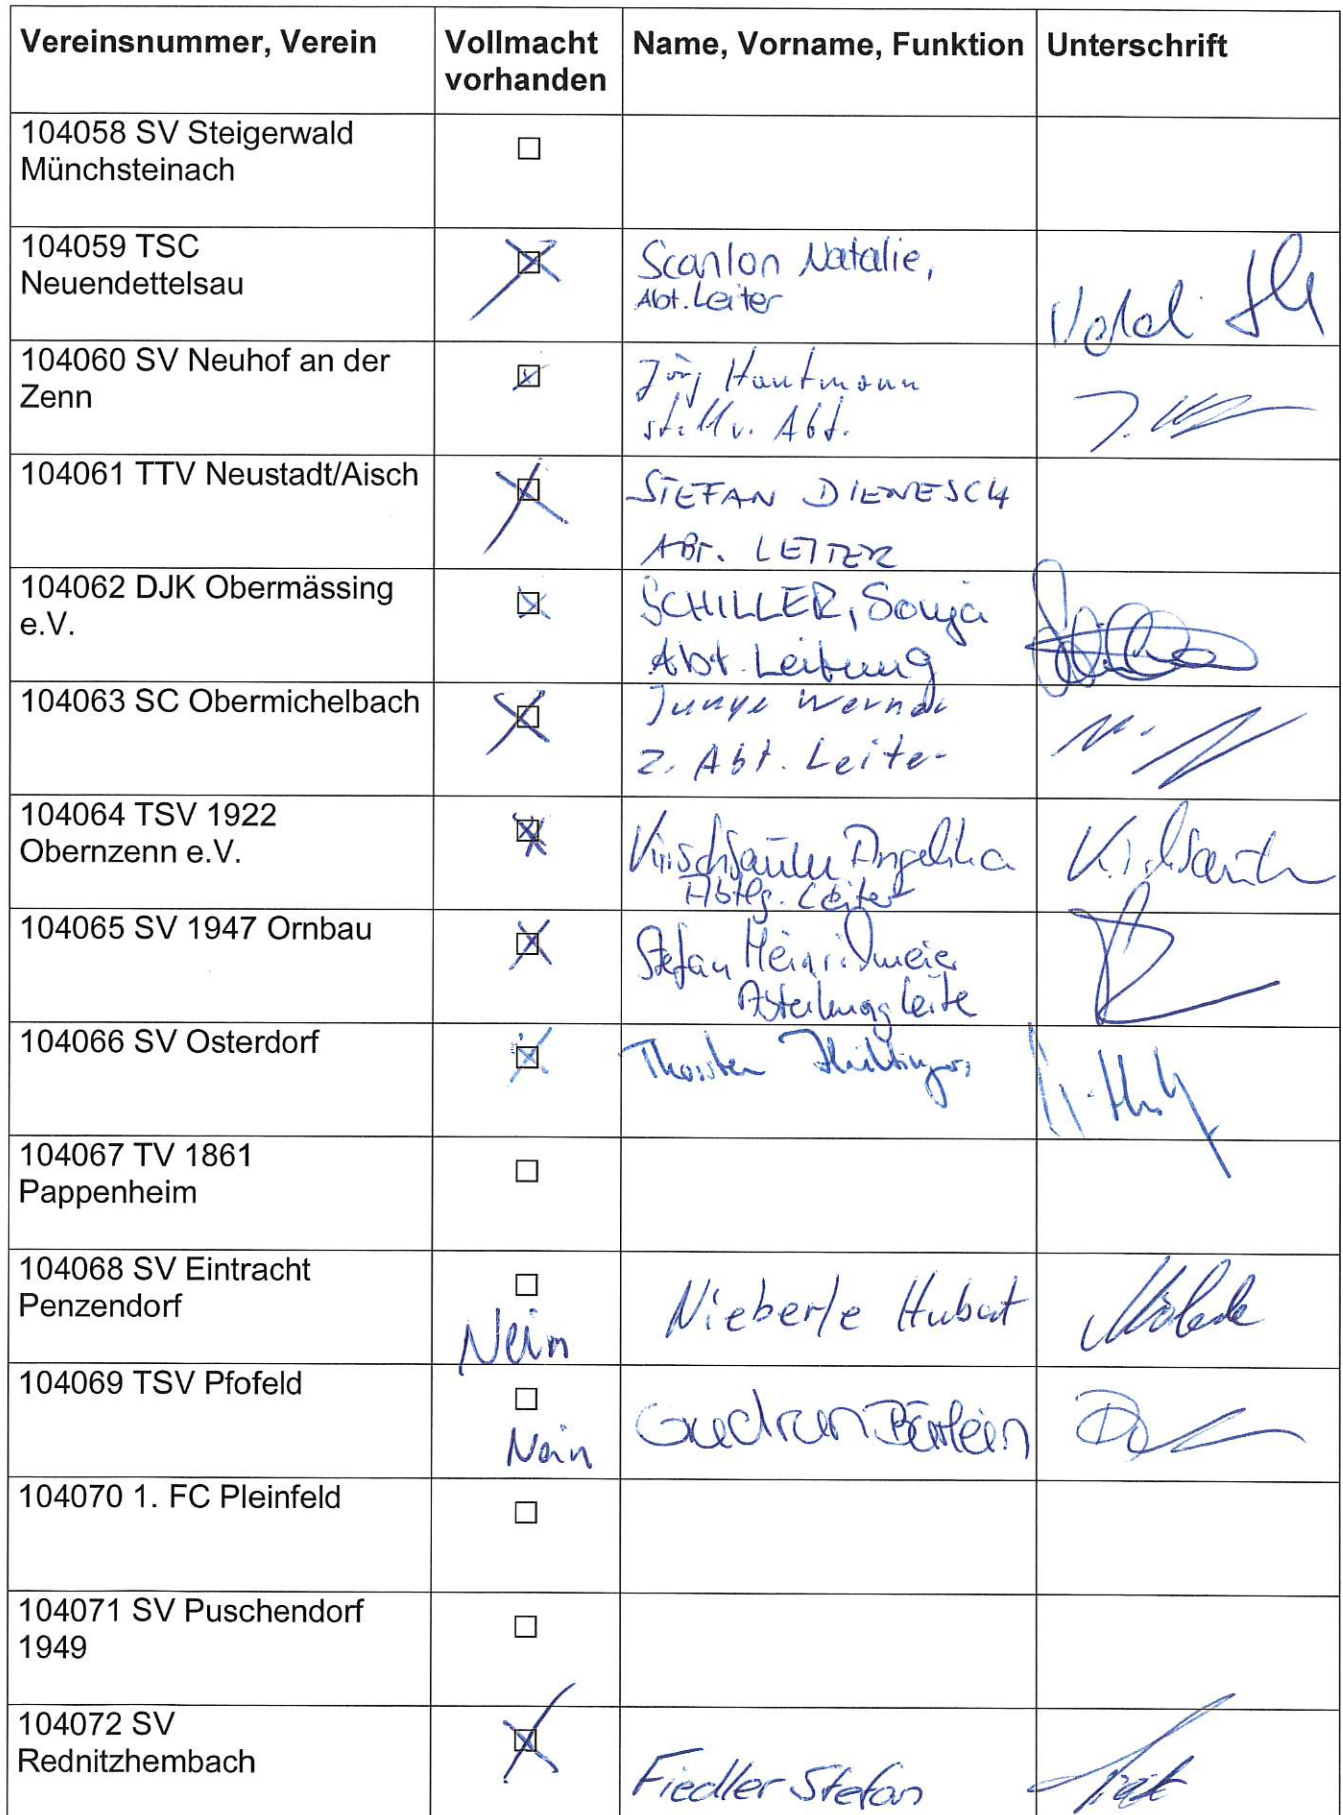 Vereinsnummer, Verein Vollmacht Name, Vorname, Funktion Unterschrift
vorhanden
104058 SV Steigerwald ☐
Münchsteinach
104059 TSC ☒ Scanlon Natalie,
Neuendettelsau Abt. Leiter
104060 SV Neuhof an der ☒ Jörg Hautmann
Zenn stellv. Abt.
104061 TTV Neustadt/Aisch ☒ STEFAN DIENESCH
ABT. LEITER
104062 DJK Obermässing ☒ SCHILLER, Sonja
e.V. Abt. Leitung
104063 SC Obermichelbach ☒ Junge Werner
2. Abt. Leiter
104064 TSV 1922 ☒ Angelika
Obernzenn e.V. Abtlg. Leiter
104065 SV 1947 Ornbau ☒ Stefan
Abteilungsleite
104066 SV Osterdorf ☒ Thorsten
104067 TV 1861 ☐
Pappenheim
104068 SV Eintracht ☐ Nieberle Hubert
Penzendorf Nein
104069 TSV Pfofeld ☐ Gudrun Bärlein
Nein
104070 1. FC Pleinfeld ☐
104071 SV Puschendorf ☐
1949
104072 SV ☒
Rednitzhembach Fiedler Stefan